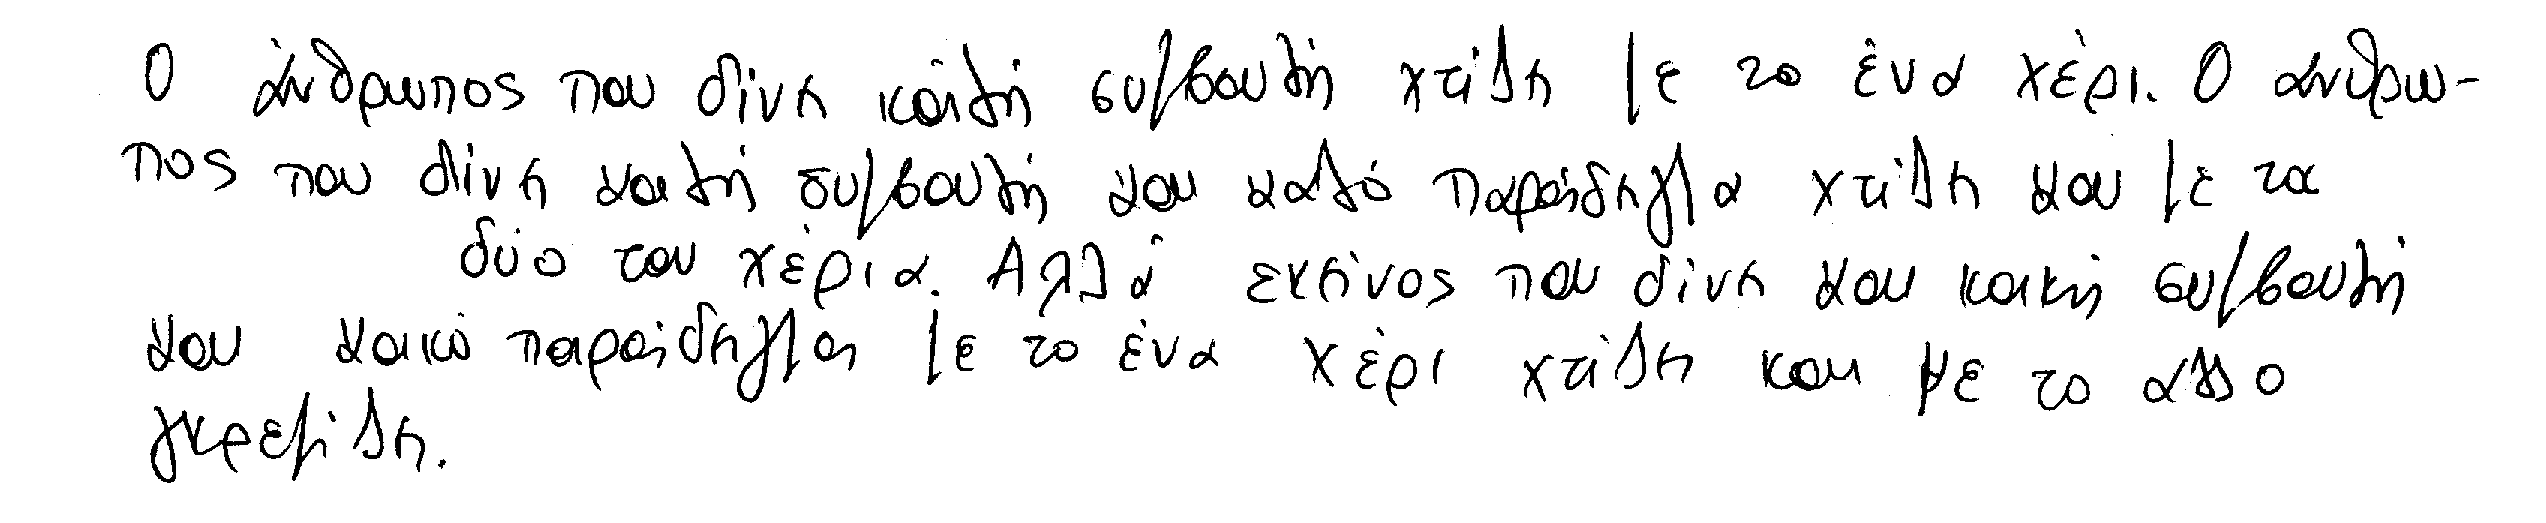 Ο άνθρωπος που δίνει καλή συμβουλή χτίζει με το ένα χέρι. Ο άνθρω-
πος που δίνει καλή συμβουλή και καλό παράδειγμα χτίζει και με τα
δύο του χέρια. Αλλά εκείνος που δίνει και κακή συμβουλή
και κακό παράδειγμα με το ένα χέρι χτίζει και με το αλλο
γκρεμίζει.